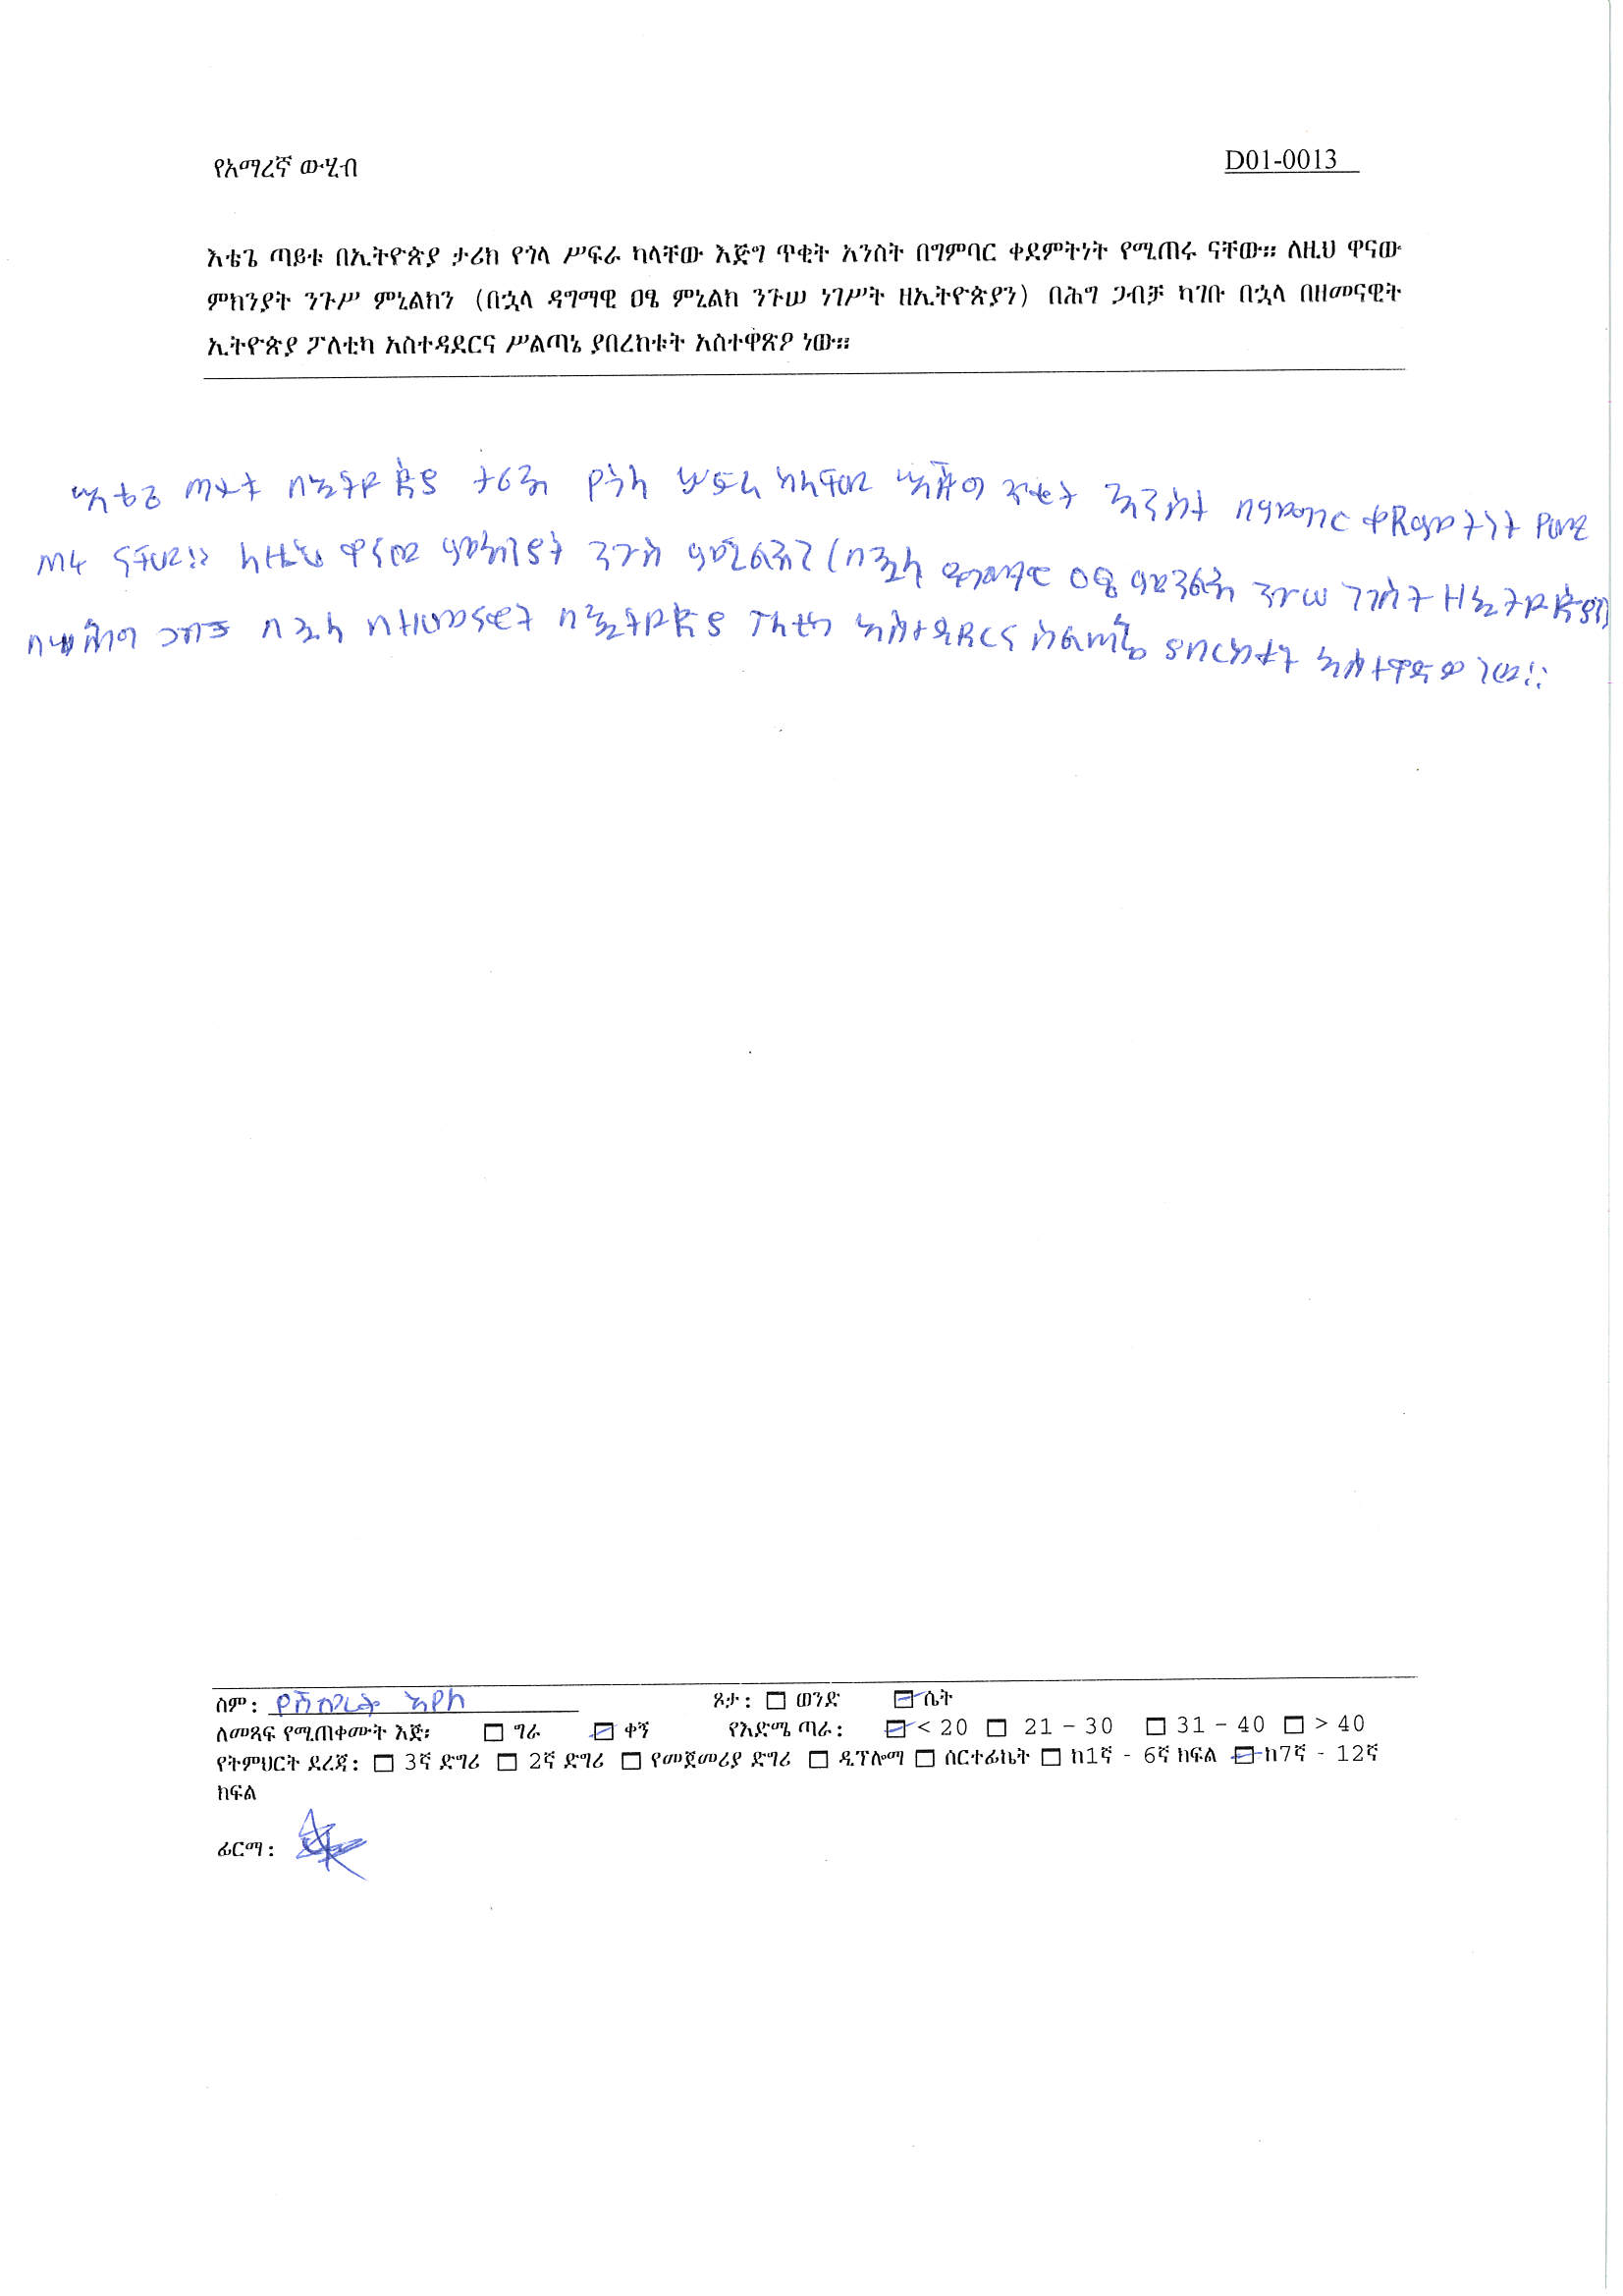 የአማረኛ ውሂብ
D01-0013
እቴጌ ጣይቱ በኢትዮጵያ ታሪክ የጎላ ሥፍራ ካላቸው እጅግ ጥቂት አንስት በግምባር ቀደምትነት የሚጠሩ ናቸው። ለዚህ ዋናው
ምክንያት ንጉሥ ምኒልክን (በኋላ ዳግማዊ ዐፄ ምኒልክ ንጉሠ ነገሥት ዘኢትዮጵያን) በሕግ ጋብቻ ካገቡ በኋላ በዘመናዊት
ኢትዮጵያ ፖለቲካ አስተዳደርና ሥልጣኔ ያበረከቱት አስተዋጽዖ ነው።
እቴጌ ጣይቱ በኢትዮጵያ ታሪክ የጎላ ሥፍራ ካላቸው እጅግ ጥቂት እንስት በግምባር ቀደምትነት የሚ
ጠሩ ናቸው። ለዚህ ዋናው ምክንያት ንጉስ ምኒልክን (በኋላ ዳግማዊ ዐፄ ምንልክ ንጉሠ ነገስት ዘኢትዮጵያን)
በሕግ ጋብቻ በኋላ በዘመናዊት በኢትዮጵያ ፖለቲካ አስተዳደርና ስልጣኔ ያበርከቱት አስተዋጽዖ ነው።
ስም: የሺመቤት አየለ ጾታ: ወንድ ሴት
ለመጻፍ የሚጠቀሙት እጅ፡ ግራ ቀኝ የእድሜ ጣራ: < 20 21 – 30 31 – 40 > 40
የትምህርት ደረጃ: 3ኛ ድግሪ 2ኛ ድግሪ የመጀመሪያ ድግሪ ዲፕሎማ ሰርተፊኬት ከ1ኛ - 6ኛ ክፍል ከ7ኛ - 12ኛ
ክፍል
ፊርማ: